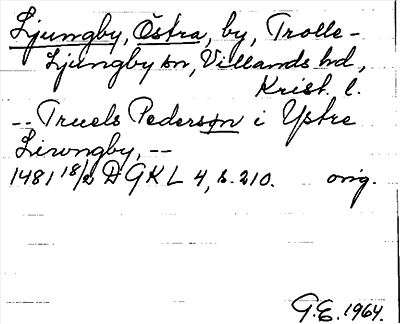 Ljungby, Östra, by, Trolle-
Ljungby sn, Villands hd,
Krist. l.
-- Truels Pedersøn i Ystre
Liwngby, --
1481 18/2 DGKL 4, s. 210. orig.
G.E. 1964.